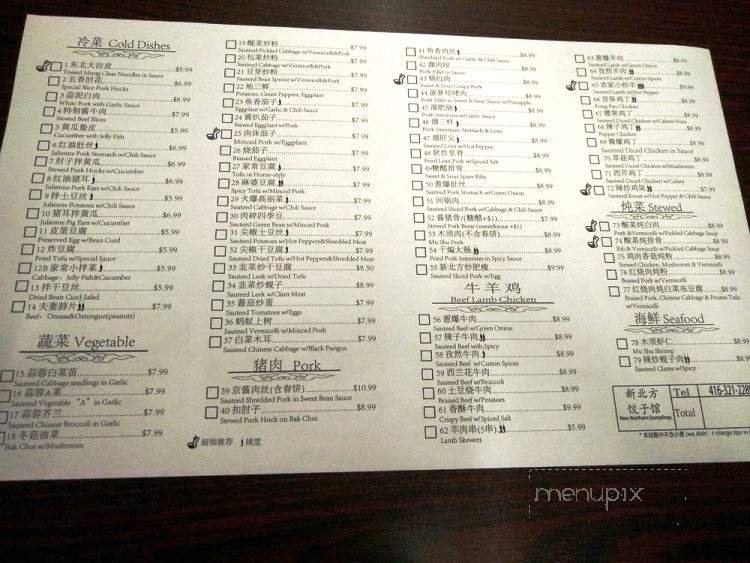 冷菜 Cold Dishes
1 东北大拉皮 $5.99
Tossed Mung Clear Noodles in Sauce
2 五香肘花 $6.99
Special Slice Pork Hocks
3 蒜泥白肉 $6.99
White Pork with Garlic Sauce
4 特制酱牛肉 $7.99
Stewed Beef Slices
5 黄瓜蛰皮 $5.99
Cucumber with Jelly Fish
6 红油肚丝 $6.99
Julienne Pork Stomach w/Chili Sauce
7 肘子拌黄瓜 $6.99
Stewed Pork Hocks w/Cucumber
8 红油猪耳 $6.99
Julienne Pork Ears w/Chili Sauce
9 拌土豆丝 $5.99
Julienne Potatoes w/Chili Sauce
10 猪耳拌黄瓜 $6.99
Julienne Pig Ears w/Cucumber
11 皮蛋豆腐 $5.99
Preserved Egg w/Bean Curd
12 炸豆腐 $5.99
Fried Tofu w/Special Sauce
12B 家常小拌菜 $5.99
Cabbage, Jelly Fish&Cucumber
13 拌干豆丝 $5.99
Dried Bean Curd Salad
14 夫妻肺片 $7.99
Beef, Omasa&Oxtongue(peanuts)
蔬菜 Vegetable
15 蒜蓉白菜苗 $7.99
Sauteed Cabbage seedlings in Garlic
16 蒜蓉A菜 $7.99
Sauteed Vegetable "A" in Garlic
17 蒜蓉芥兰 $7.99
Sauteed Chinese Broccoli in Garlic
18 冬菇油菜 $7.99
Bak Choi w/Mushroom
19 酸菜炒粉 $7.99
Sauteed Pickled Cabbage w/Vermicelli&Pork
20 包菜炒粉 $7.99
Sauteed Cabbage w/Vermicelli&Pork
21 豆芽炒粉 $7.99
Sauteed Bean Sprout w/Vermicelli&Pork
22 地三鲜 $7.99
Potatoes, Green Peppers, Eggplant
23 鱼香茄子 $7.99
Eggplant w/Garlic & Chili Sauce
24 酱扒茄子 $7.99
Stewed Eggplant w/Pork
25 肉沫茄子 $7.99
Minced Pork w/Eggplant
26 烧茄子 $7.99
Braised Eggplant
27 家常豆腐 $7.99
Tofu in Home-style
28 麻婆豆腐 $7.99
Spicy Tofu w/Minced Pork
29 火爆高丽菜 $7.99
Sauteed Cabbage w/Chili Sauce
30 肉碎四季豆 $7.99
Sauteed Green Bean w/Minced Pork
31 尖椒土豆丝 $7.99
Sauteed Potatoes w/Hot Peppers&Shredded Meat
32 尖椒干豆腐 $7.99
Sauteed Dried Tofu w/Hot Peppers&Shredded Meat
33 韭菜炒干豆腐 $8.50
Sauteed Leek w/Dried Tofu
34 韭菜炒蚬子 $8.99
Sauteed Leek w/Clam Meat
35 蕃茄炒蛋 $7.99
Sauteed Tomatoes w/Eggs
36 蚂蚁上树 $7.99
Sauteed Vermicelli w/Minced Pork
37 白菜木耳 $7.99
Sauteed Chinese Cabbage w/Black Fungus
猪肉 Pork
39 京酱肉丝(含春饼) $10.99
Sauteed Shredded Pork in Sweet Bean Sauce
40 扣肘子 $8.99
Stewed Pork Hock on Bak Choi
厨师推荐 辣度
41 鱼香肉丝 $8.99
Shredded Pork w/Garlic & Chili Sauce
42 溜肉段 $8.99
Pork Fillet in Sauce
43 锅包肉 $8.99
Sweet & Sour Crispy Pork
44 菠萝咕咾肉 $8.99
Pork Fillet w/Sweet & Sour Sauce w/Pineapple
45 溜肥肠 $8.99
Pork Intestines w/Garlic Sauce
46 溜三样 $8.99
Pork Intestines, Stomach & Liver
47 溜肝尖 $8.99
Sauteed Liver w/Hot Pepper
48 软炸里脊 $8.99
Fried Lean Pork w/Spiced Salt
49 糖醋排骨 $8.99
Sweet & Sour Spare Ribs
50 葱爆肚丝 $8.99
Sauteed Pork Stomach w/Green Onion
51 回锅肉 $8.99
Sauteed Sliced Pork w/Cabbage & Chili Sauce
52 酱猪骨(糖醋+$1) $7.99
Stewed Pork Bone (sweet&sour +$1)
53 木须肉(不含春饼) $8.99
Mu Shu Pork
54 干煸大肠 $8.99
Fried Pork Intestines in Spicy Sauce
55 新北方炒肥瘦 $9.99
Sauteed Sliced Pork w/Egg
牛 羊 鸡
Beef Lamb Chicken
56 葱爆牛肉 $8.99
Sauteed Beef w/Green Onion
57 辣子牛肉 $8.99
Sauteed Beef with Spicy
58 孜然牛肉 $8.99
Sauteed Beef w/Cumin Spices
59 西兰花牛肉 $8.99
Sauteed Beef w/Broccoli
60 土豆烧牛肉 $8.99
Braised Beef w/Potatoes
61 香酥牛肉 $9.99
Crispy Beef w/Spiced Salt
62 羊肉串(5串) $5.99
Lamb Skewers
63 葱爆羊肉 $8.99
Sauteed Lamb w/Green Onion
64 孜然羊肉 $8.99
Sauteed Lamb w/Cumin Spices
65 农家小炒羊 $8.99
Sauteed Lamb w/Hot Pepper
66 宫保鸡丁 $8.99
Kong Pao Chicken
67 腰果鸡丁 $8.99
Sauteed Diced Chicken w/Cashew Nuts
68 辣子鸡丁 $8.99
Pepper Chicken
69 酱爆鸡丁 $8.99
Sauteed Diced Chicken in Sauce
70 草菇鸡丁 $8.99
Sauteed Diced Chicken w/Mushroom
71 西芹鸡丁 $8.99
Sauteed Diced Chicken w/Celery
72 辣炒鸡架 $8.99
Stewed Chicken w/Hot Chili Sauce
炖菜 Stewed
73 酸菜炖白肉 $8.99
Pork & Vermicelli w/Pickled Cabbage Soup
74 酸菜炖排骨 $8.99
Rib & Vermicelli w/Pickled Cabbage Soup
75 鸡肉香菇炖粉 $8.99
Stewed Chicken, Mushroom & Vermicelli
76 红烧肉炖粉 $8.99
Braised Pork w/Vermicelli
77 红烧肉炖白菜冻豆腐 $8.99
Braised Pork, Chinese Cabbage & Frozen Tofu
w/Vermicelli
海鲜 Seafood
78 木须虾仁 $8.99
Mu Shu Shrimp
79 辣炒蚬子肉 $8.99
Sauteed Clams w/Spicy
新北方
饺子馆
New Northern Dumplings
Tel 416-321-2289
Total
*本结账中不含小费 (we didn't charge tips in
menupix